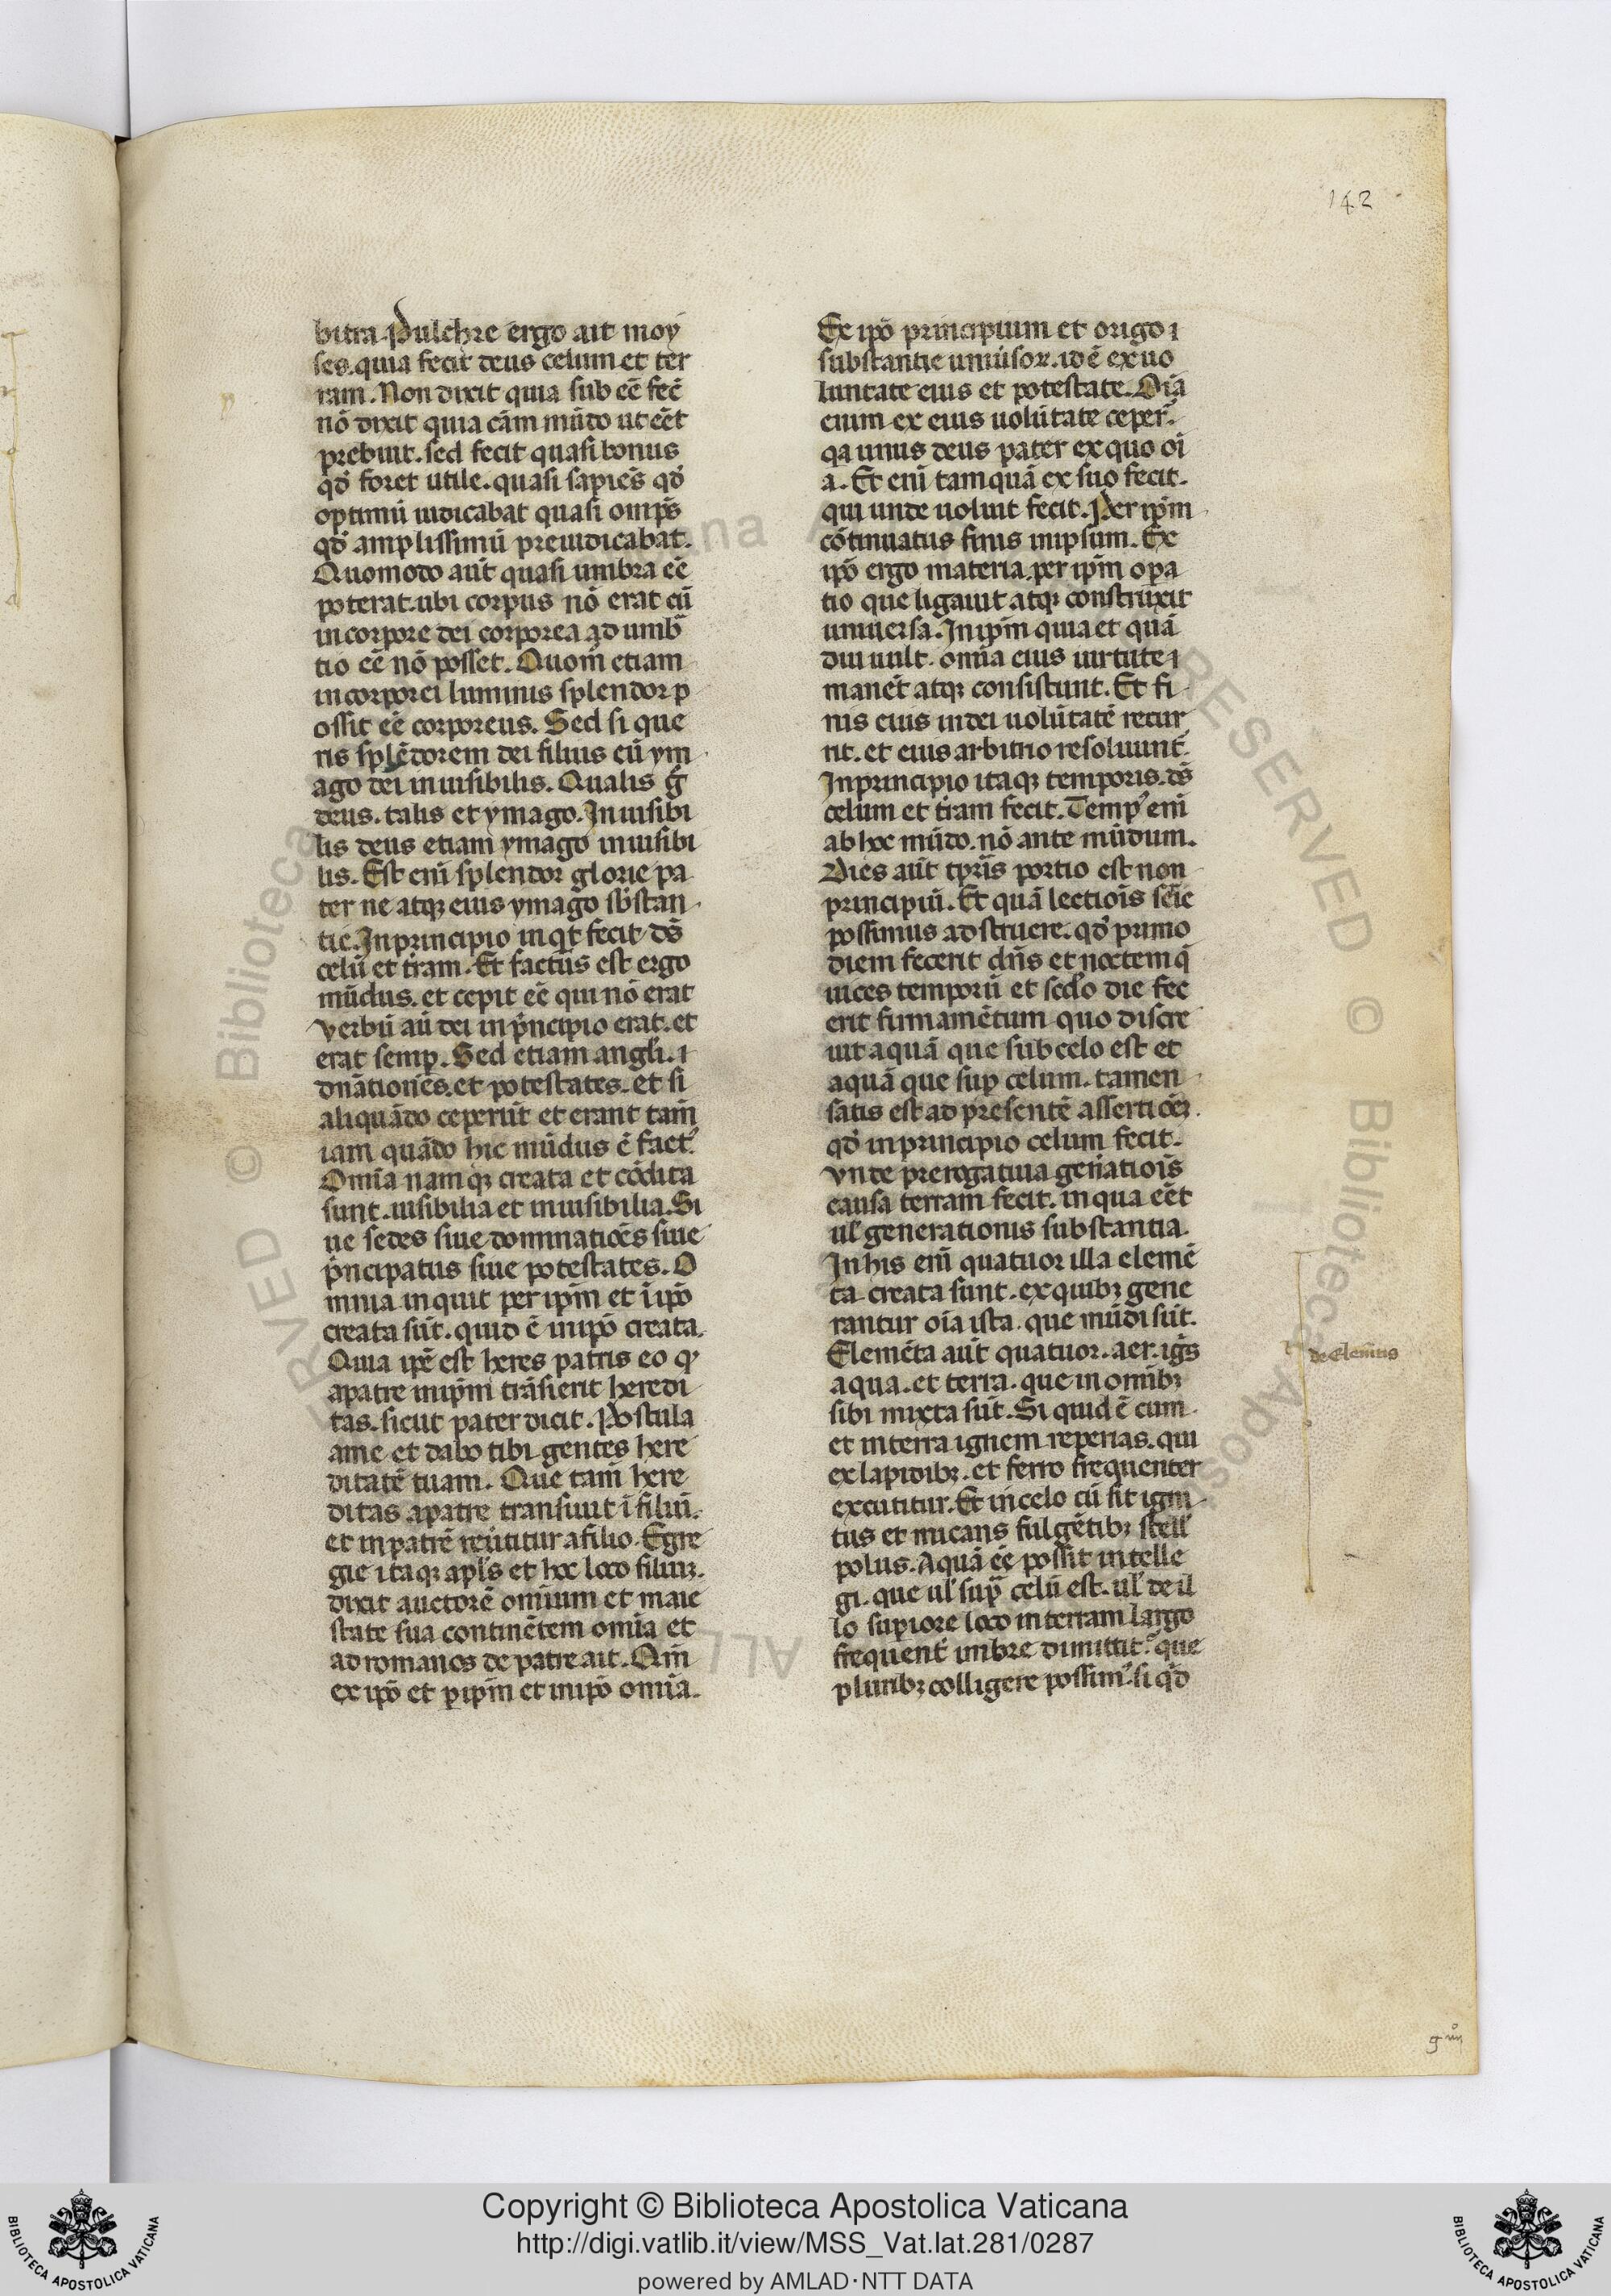 142
bitra. Pulchre ergo ait moy
ses. quia fecit deus celum et ter
ram. Non dixit quia sub eē fec̄
nō dixit quia cām mūdo ut eēt
prebuit. sed fecit quasi bonus
qd̓ foret utile. quasi sapiēs qd̓
optimū iudicabat quasi omīps̄
qd̓ amplissimū preiudicabat.
Quomodo aūt quasi umbra eē
poterat. ubi corpus nō erat cū
incorpore dei corporea ad umb̄
tio eē nō posset. Quom̄ etiam
incorporei luminis splendor p
ossit eē corporeus. Sed si que
ris splēdorem dei filius eū ym
ago dei inuisibilis. Qualis ḡ
deus. talis et ymago. Inuisibi
lis deus etiam ymago inuisibi
lis. Est enī splendor glorie pa
ter ne atqꝫ eius ymago sb̄stan
tie. In principio inqt̓ fecit ds̄
celū et tr̄am. Et factus est ergo
mūdus. et cepit eē qui nō erat
verbū aū dei in p̓ncipio erat. et
erat semꝑ. Sed etiam angl̓i. ⁊
dn̄ationēs. et potestates. et si
aliquādo ceperūt et erant tam̄
iam quādo hic mūdus ē fact᾽.
Omīa namqꝫ creata et cōdita
sunt. uisibilia et inuisibilia. Si
ue sedes siue dominatiōes siue
p̓ncipatus siue potestates. O
mnia inquit per ip̄m et ī ip̄o
creata sūt. quid ē in ip̄o creata.
Quia ip̄e est heres patris eo ꝙ
a patre in ip̄m trāsierit heredi
tas. sicut pater dicit. Postula
a me et dabo tibi gentes here
ditatē tuam. Que tam̄ here
ditas a patre transiuit ī filiū.
et in patrē reūtitur a filio. Egre
gie itaqꝫ apl̓s et hoc loco filiuꝫ.
dixit auctorē omīum et maie
state sua continētem omīa et
ad romanos de patre ait. Qm̄
ex ip̄o et ꝑ ip̄m et in ip̄o omīa.
Ex ip̄o principium et origo ⁊
substantie uniūsoꝝ. id ē ex uo
luntate eius et potestate. Oīa
enim ex eius uolūtate ceper̄.
qa unus deus pater ex quo oī
a. Et enī tamquā ex suo fecit.
qui unde uoluit fecit. Per ip̄m
cōtinuatus finis in ipsum. Ex
ip̄o ergo materia. per ip̄m opa
tio que ligauit atqꝫ construxit
uniuersa. In ip̄m quia et quā
diu uult. omīa eius uirtute ⁊
manēt atqꝫ consistunt. Et fi
nis eius in dei uolūtatē recur
rit. et eius arbitrio resoluunt̄.
In principio itaqꝫ temporis. ds̄
celum et tr̄am fecit. Temp᾽ enī
ab hoc mūdo. nō ante mūdum.
Dies aūt tp̄ris portio est non
principiū. Et quā lectiōis serīe
possimus adstruere. qd̓ primo
diem fecerit dn̄s et noctem q̄
uices temporū et sed̓o die fec
erit firmamētum quo discre
uit aquā que sub celo est et
aquā que suꝑ celum. tamen
satis est ad presentē assertiōeꝫ.
qd̓ in principio celum fecit.
vnde prerogatiua gen̄atiōis
causa terram fecit. in qua eēt
ul̓ generationis substantia.
In his enī quatuor illa elemē
ta creata sunt. ex quibꝫ gene
rantur oīa ista. que mūdi sūt.
Elemēta aūt quatuor. aer. igīs
aqua. et terra. que in omībꝫ
sibi mixta sūt. Si quid ē cum
et in terra ignem reperias. qui
ex lapidibꝫ. et ferro frequenter
excutitur. Et in celo cū sit igni
tus et micans fulgētibꝫ stell̓
polus. Aquā eē possit intelle
gi. que ul̓ sup̄ celū est. ul̓ de il
lo supiore loco in terram largo
frequent̄ imbre dimittit᾽. que
pluribꝫ colligere possim᾽. si qd̓
de Elem̄tis
Copyright © Biblioteca Apostolica Vaticana
http://digi.vatlib.it/view/MSS_Vat.lat.281/0287
powered by AMLAD·NTT DATA
BIBLIOTECA APOSTOLICA VATICANA
BIBLIOTECA APOSTOLICA VATICANA